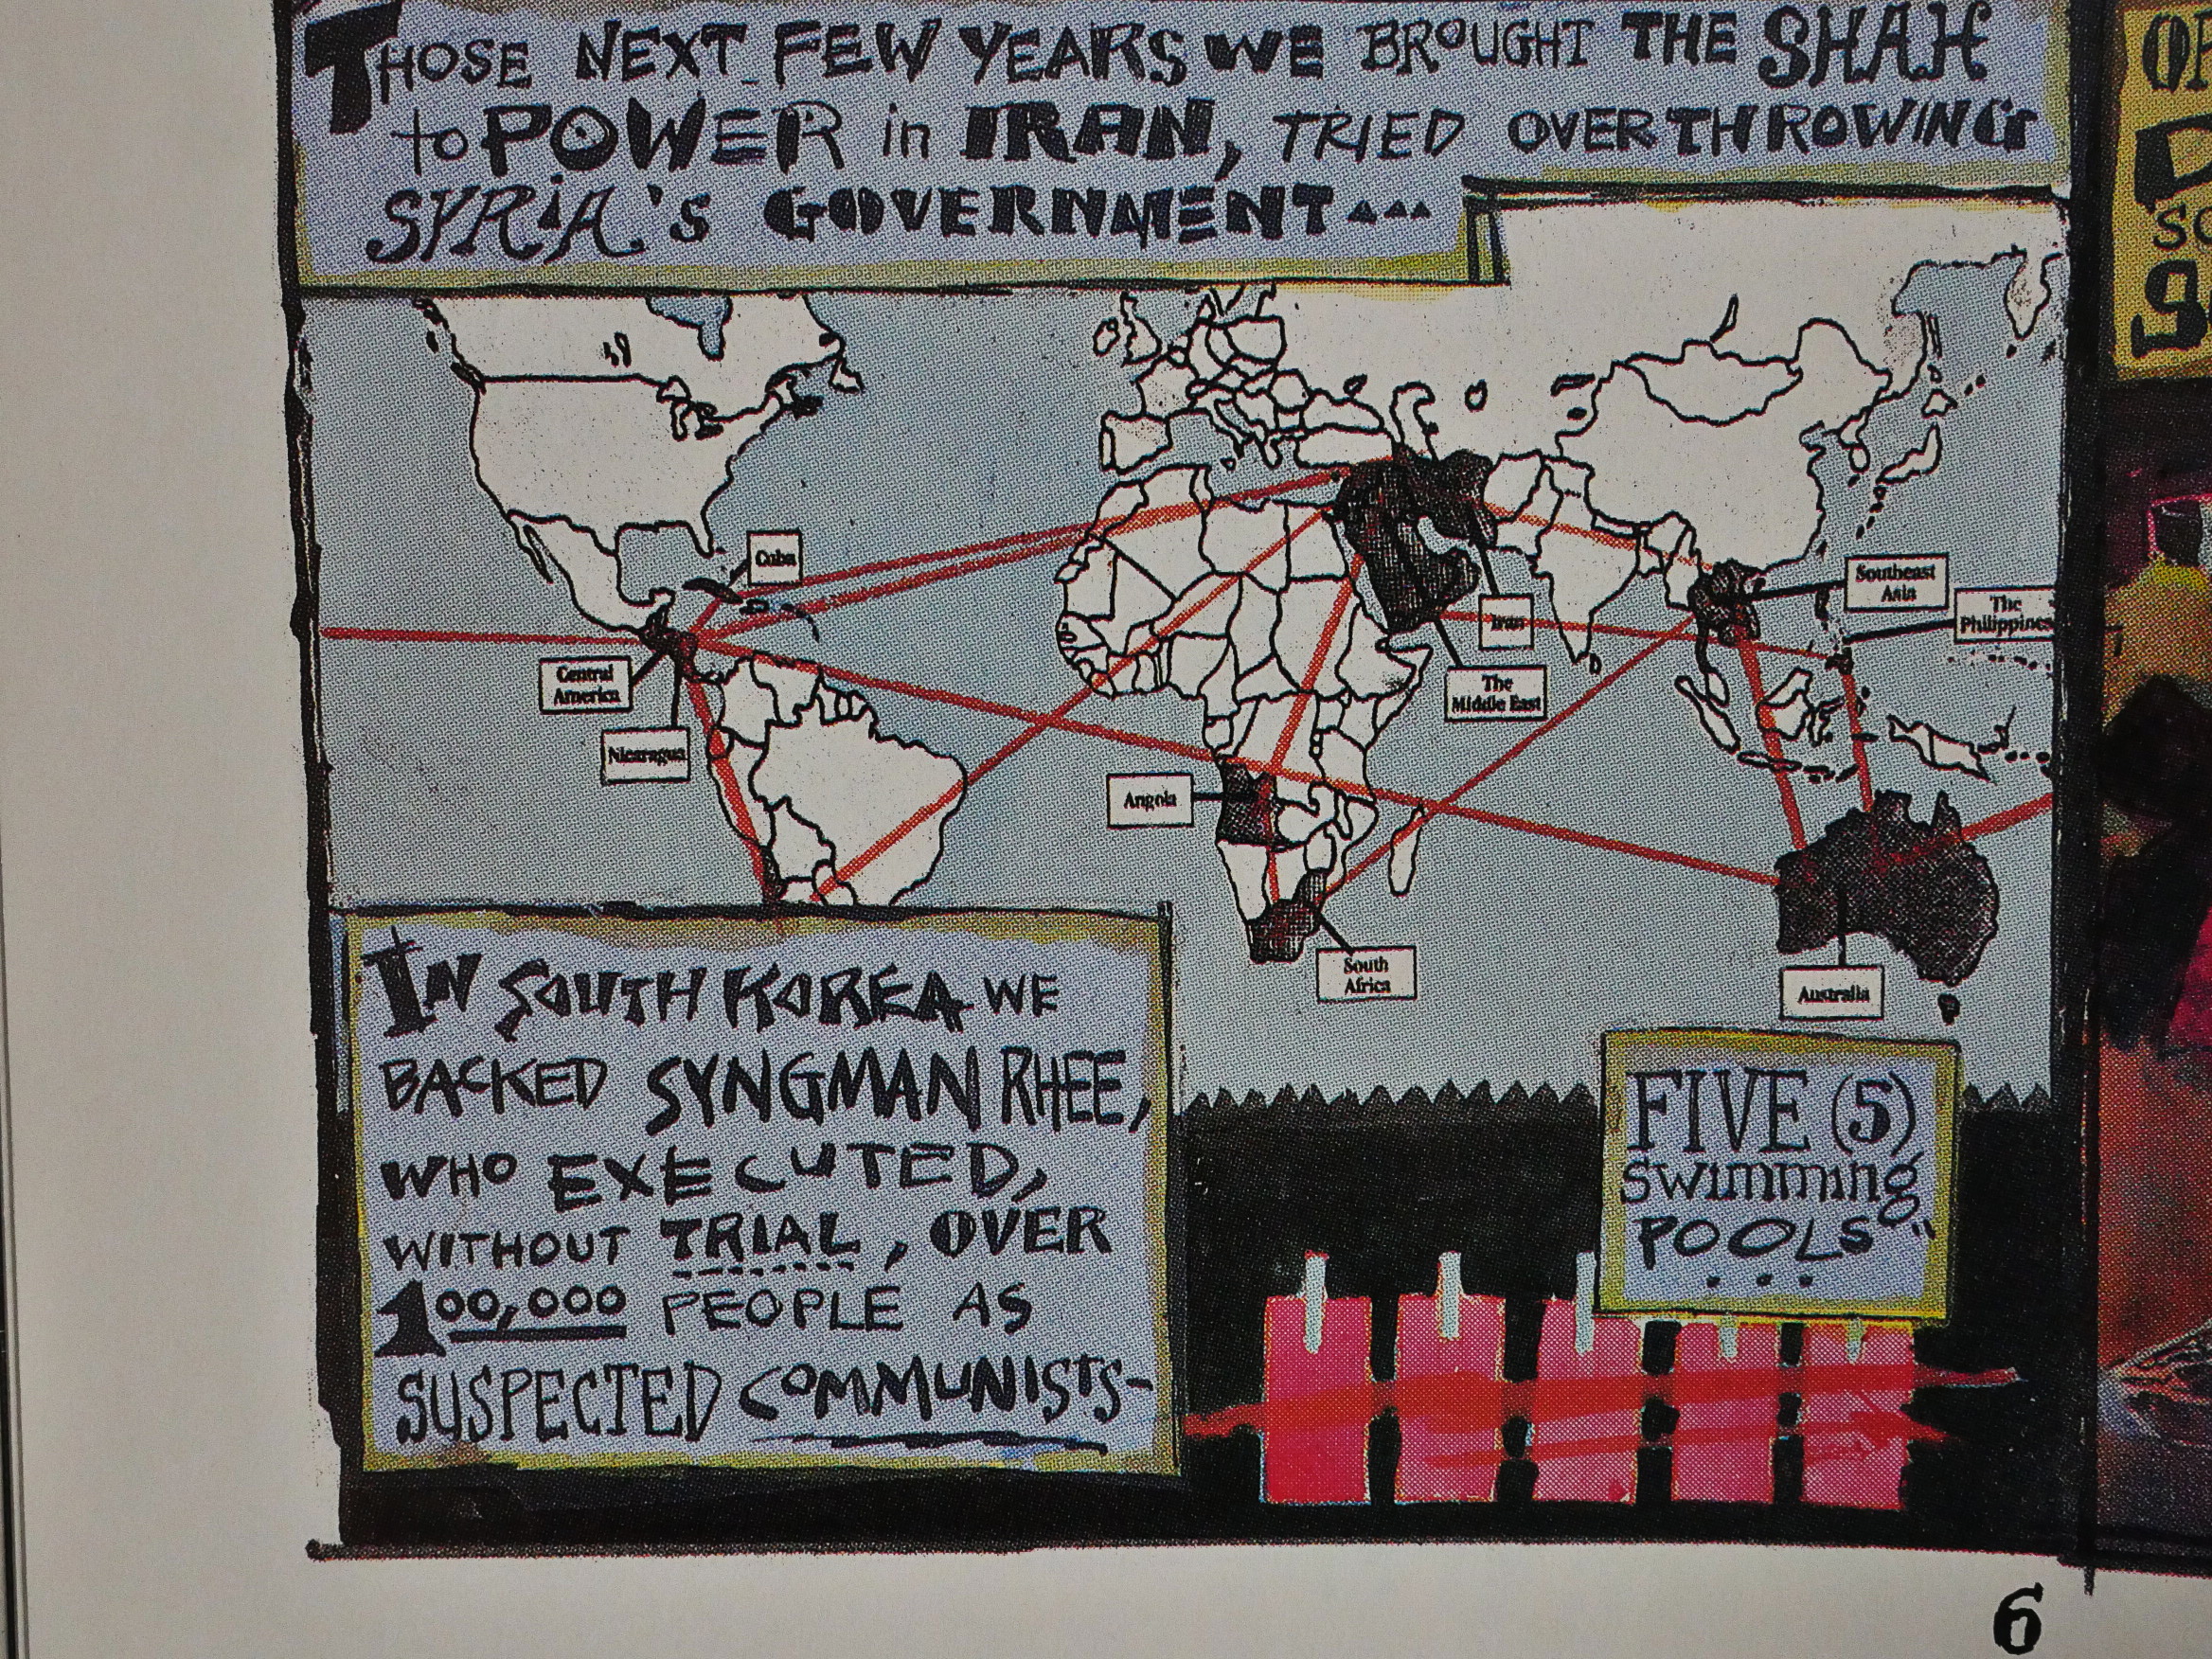 THOSE NEXT FEW YEARS WE BROUGHT THE SHAH
to POWER in IRAN, TRIED OVERTHROWING
SYRiA'S GOVERNMENT...
Cuba
Central
America
Nicaragua
Angola
South
Africa
Iran
The
Middle East
Southeast
Asia
The
Philippines
Australia
IN SOUTH KOREA WE
BACKED SYNGMAN RHEE,
WHO EXECUTED,
WITHOUT TRIAL, OVER
100,000 PEOPLE AS
SUSPECTED COMMUNISTS-
FIVE (5)
swimming
POOLS"
...
6